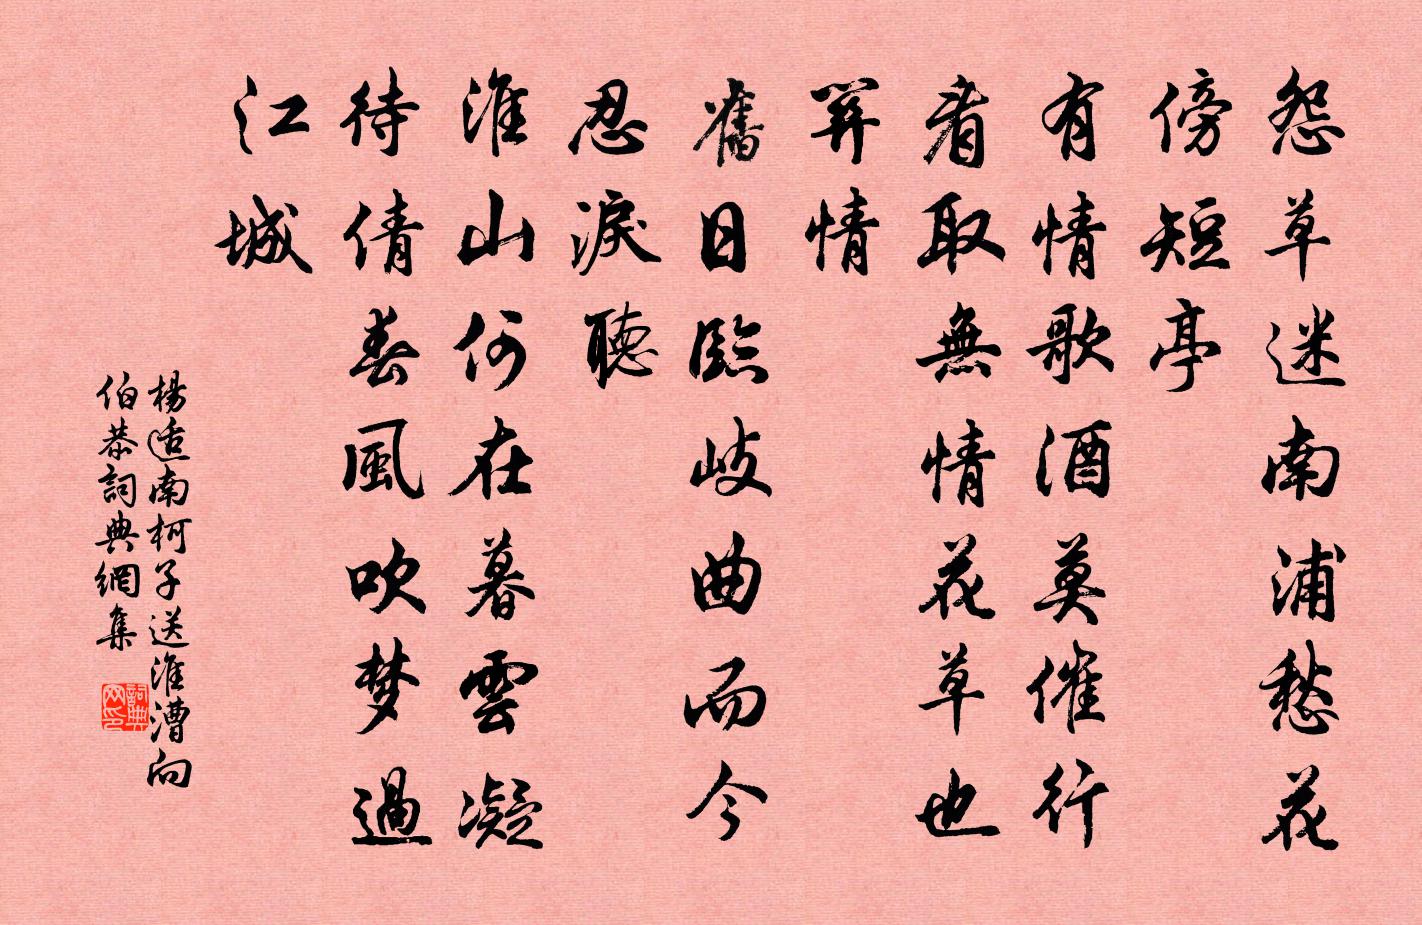 怨草迷南浦愁花
傍短亭
有情歌酒莫催行
看取無情花草也
關情
舊日臨岐曲而今
忍淚聽
淮山何在暮雲凝
待倩春風吹梦過
江城
楊适南柯子送淮漕向
伯恭詞典網集
詞典网印